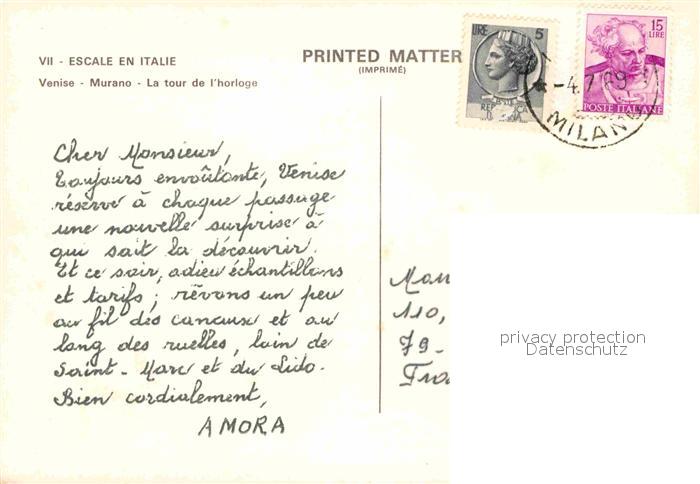 VII - ESCALE EN ITALIE
Venise - Murano - La tour de l'horloge
PRINTED MATTER
(IMPRIMÉ)
LIRE 5
15 LIRE
POSTE ITALIANE
-4.7.69
MILANO
Cher Monsieur,
Toujours envoûtante, Venise
réserve à chaque passage
une nouvelle surprise à
qui sait la découvrir.
Et ce soir, adieu échantillons
et tarifs ; rêvons un peu
au fil des canaux et au
long des ruelles, loin de
Saint-Marc et du Lido.
Bien cordialement,
AMORA
110,
79-
privacy protection
Datenschutz